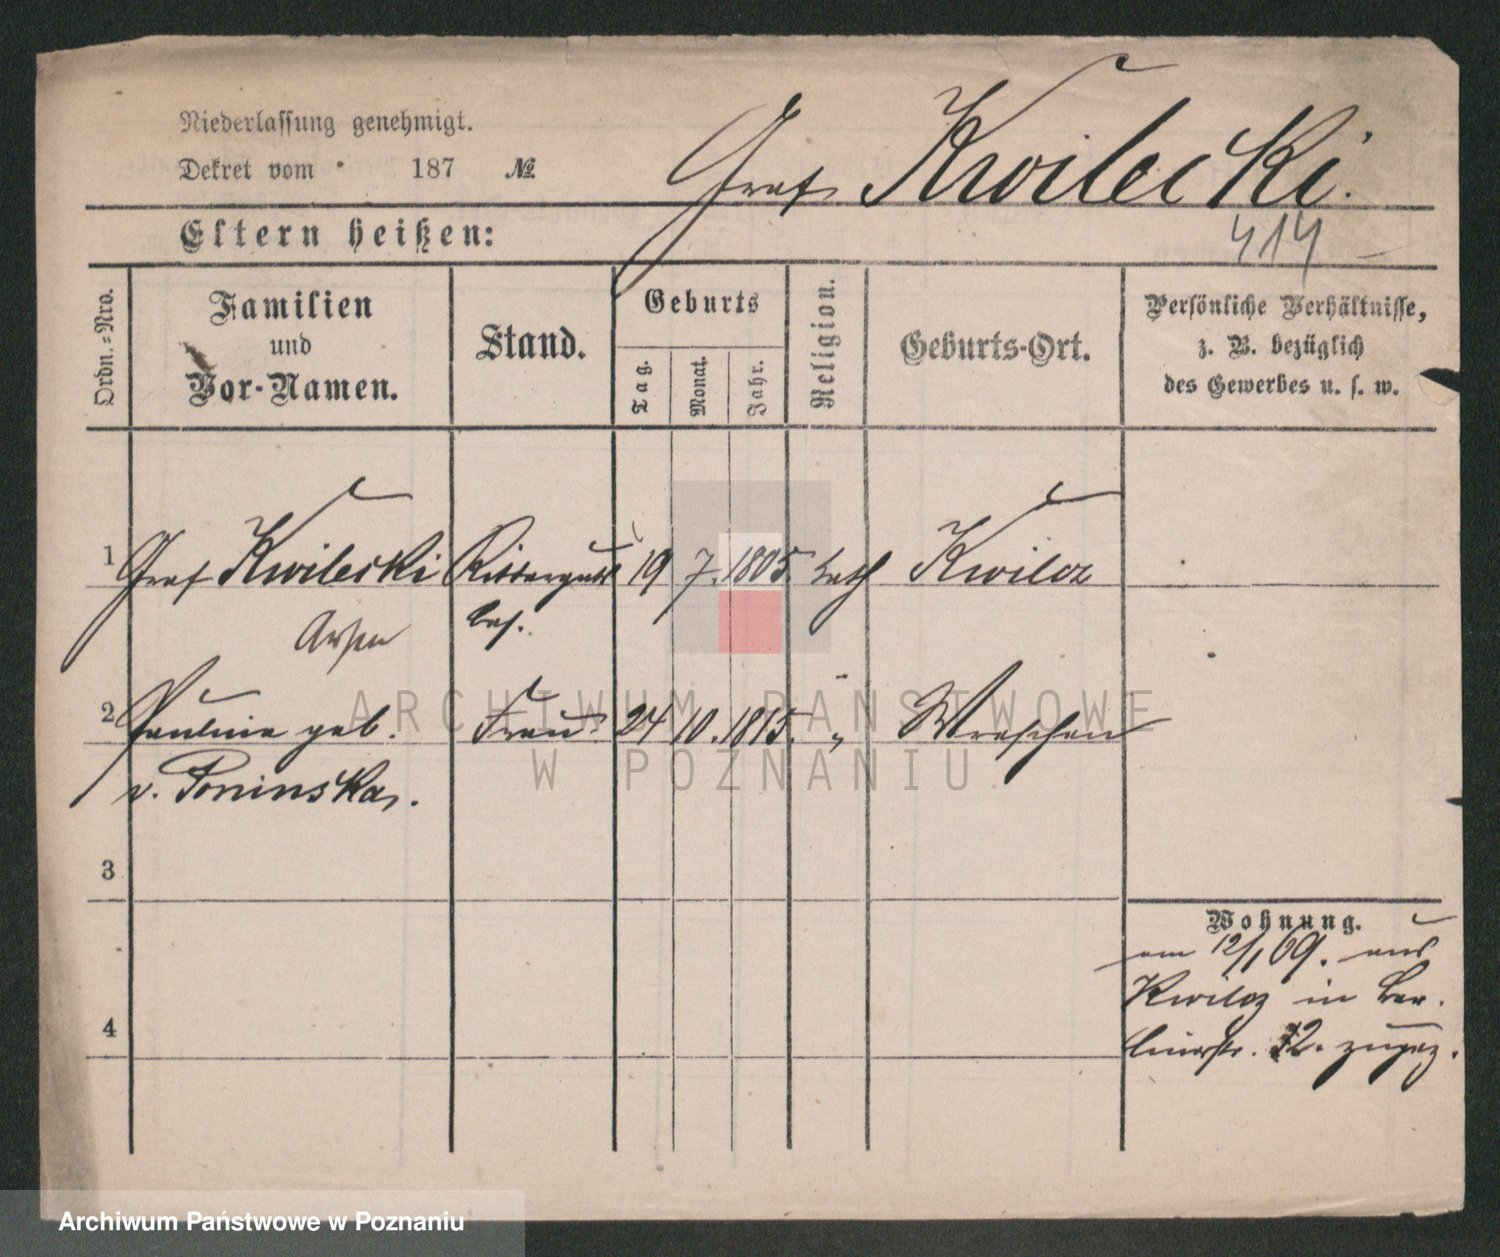 Niederlassung genehmigt.
Dekret vom 187 №
Graf Kwilecki.
414
Eltern heißen:
Ordn.=Nro.
Familien
und
Vor-Namen.
Stand.
Geburts
Tag.
Monat.
Jahr.
Religion.
Geburts-Ort.
Persönliche Verhältnisse,
z. B. bezüglich
des Gewerbes u. s. w.
1 Graf Kwilecki Ritterguts 19 7. 1805. kath Kwilcz
Arsen bes.
2 Pauline geb. Frau 24 10. 1815. " Wreschen
v. Poninska.
3
4
Wohnung.
am 12/1 69. aus
Kwilcz in Ber-
linerstr. 12. zugez.
ARCHIWUM PAŃSTWOWE
W POZNANIU
Archiwum Państwowe w Poznaniu